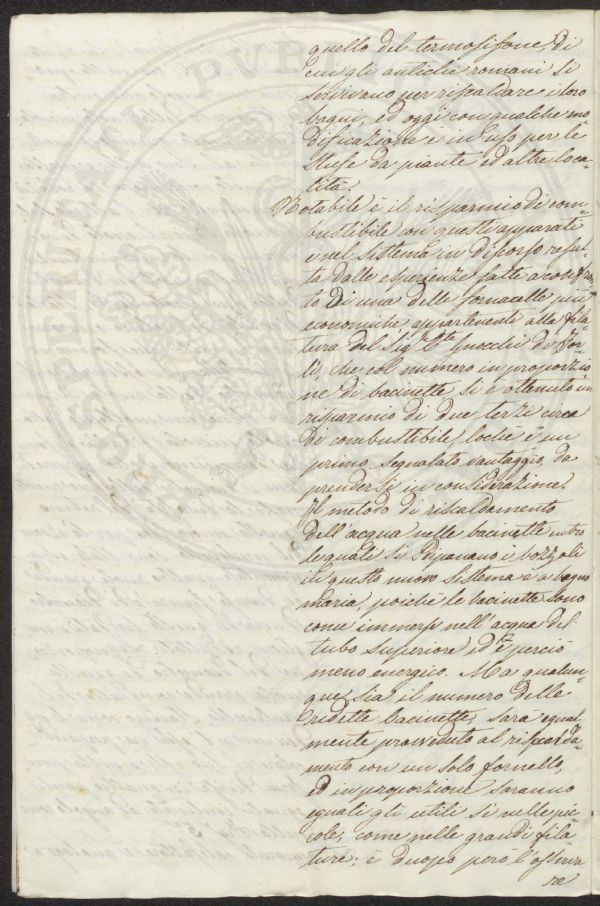 quello del termosifone, di
cui gli antichi romani si
servivano per riscaldare i loro
bagni, ed oggi con qualche mo-
dificazione è in uso per le
stufe da piante ed altre loca-
lità.
Notabile è il risparmio di com-
bustibile con questi apparati
e nel sistema in discorso resul-
ta dalle esperienze fatte a confron-
to di una delle fornacette più
economiche appartenenti alla fila-
tura del Sig.r C.te Guocchi di For-
lì, che col numero in proporzio-
ne di bacinette si è ottenuto un
risparmio di due terzi circa
di combustibile, locchè è un
primo segnalato vantaggio da
prendersi in considerazione.
Il metodo di riscaldamento
dell'acqua nelle bacinette entro
le quali si dipanano i bozzoli
in questo nuovo sistema è a bagno
maria, poichè le bacinette sono
come immerse nell'acqua del
tubo superiore ed è perciò
meno energico. Ma qualun-
que sia il numero delle
predette bacinette, sarà egual-
mente provveduto al riscalda-
mento con un solo fornello,
ed in proporzione saranno
eguali gli utili sì nelle pic-
cole, come nelle grandi fila-
ture; è duopo però l'osserva
re
PVBL